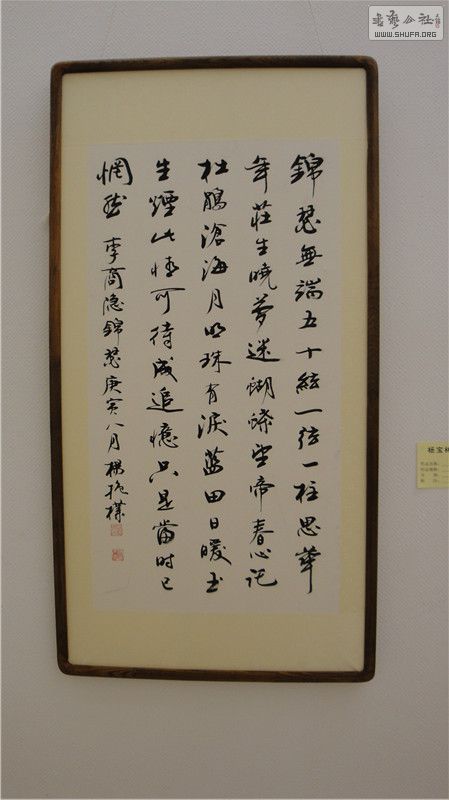 書藝公社
WWW.SHUFA.ORG
錦瑟無端五十絃一弦一柱思華
年莊生曉夢迷蝴蝶望帝春心託
杜鵑滄海月明珠有淚藍田日暖玉
生煙此情可待成追憶只是當時已
惘然 李商隱錦瑟庚寅八月楊抱樸